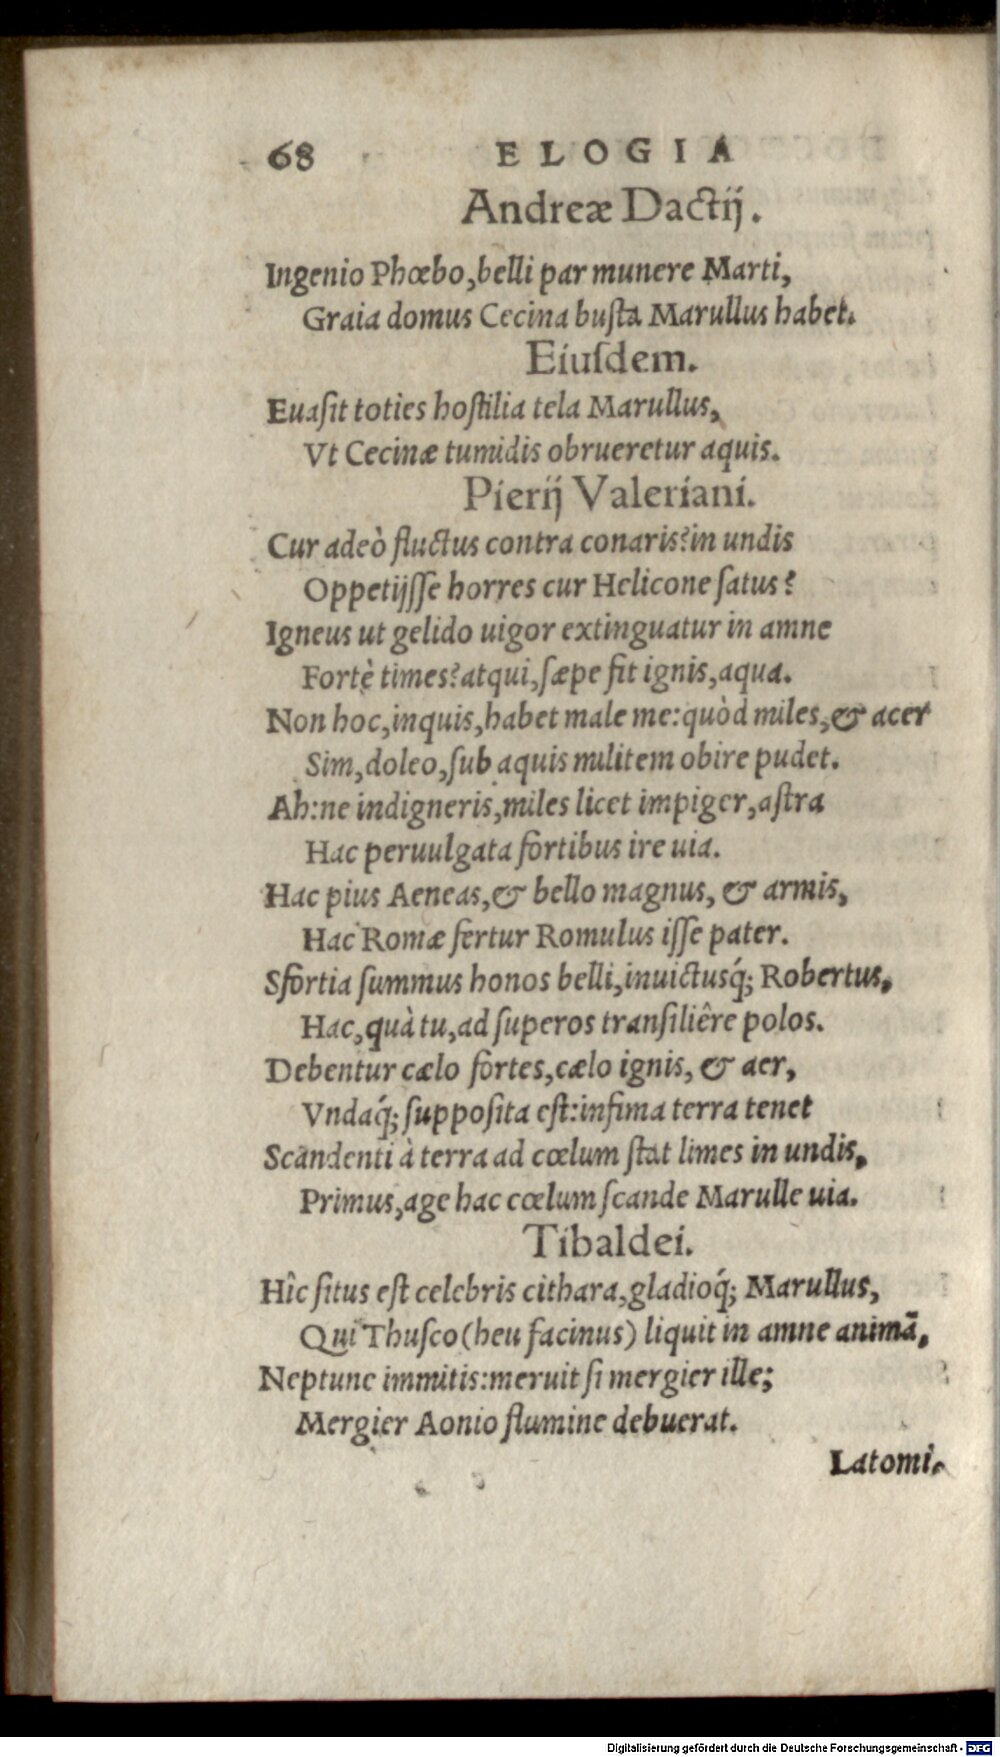 68 ELOGIA
Andreæ Dactij.
Ingenio Phœbo, belli par munere Marti,
Graia domus Cecina busta Marullus habet.
Eiusdem.
Euasit toties hostilia tela Marullus,
Vt Cecinæ tumidis obrueretur aquis.
Pierij Valeriani.
Cur adeò fluctus contra conaris? in undis
Oppetijsse horres cur Helicone satus?
Igneus ut gelido uigor extinguatur in amne
Fortè times? atqui, sæpe fit ignis, aqua.
Non hoc, inquis, habet male me: quòd miles, & acer
Sim, doleo, sub aquis militem obire pudet.
Ah: ne indigneris, miles licet impiger, astra
Hac peruulgata fortibus ire uia.
Hac pius Aeneas, & bello magnus, & armis,
Hac Romæ fertur Romulus isse pater.
Sfortia summus honos belli, inuictusq́; Robertus,
Hac, quà tu, ad superos transiliêre polos.
Debentur cælo fortes, cælo ignis, & aer,
Vndaq́; supposita est: infima terra tenet
Scandenti à terra ad cœlum stat limes in undis,
Primus, age hac cœlum scande Marulle uia.
Tibaldei.
Hîc situs est celebris cithara, gladioq́; Marullus,
Qui Thusco (heu facinus) liquit in amne animā,
Neptune immitis: meruit si mergier ille;
Mergier Aonio flumine debuerat.
Latomi.
Digitalisierung gefördert durch die Deutsche Forschungsgemeinschaft - DFG